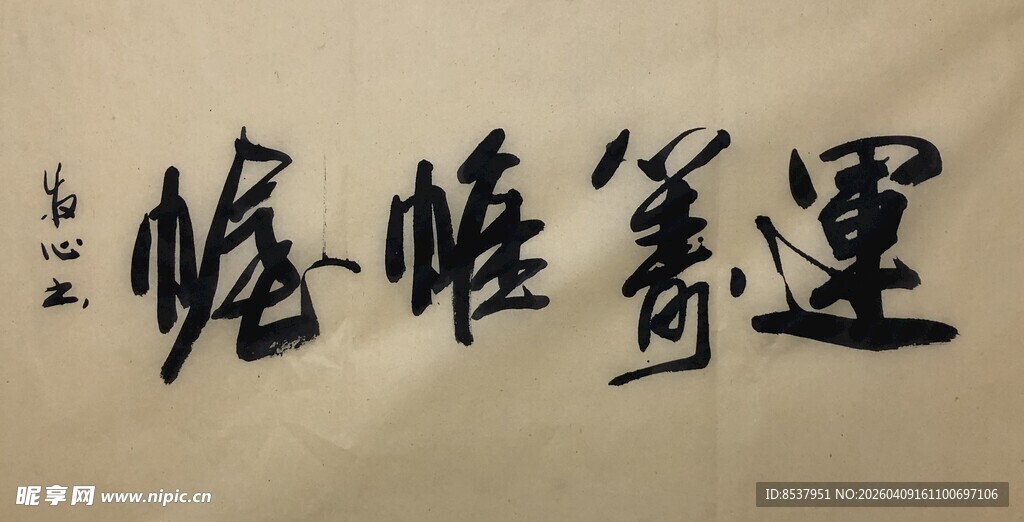 運籌帷幄
牧心书
昵享网 www.nipic.cn
ID:8537951 NO:20260409161100697106